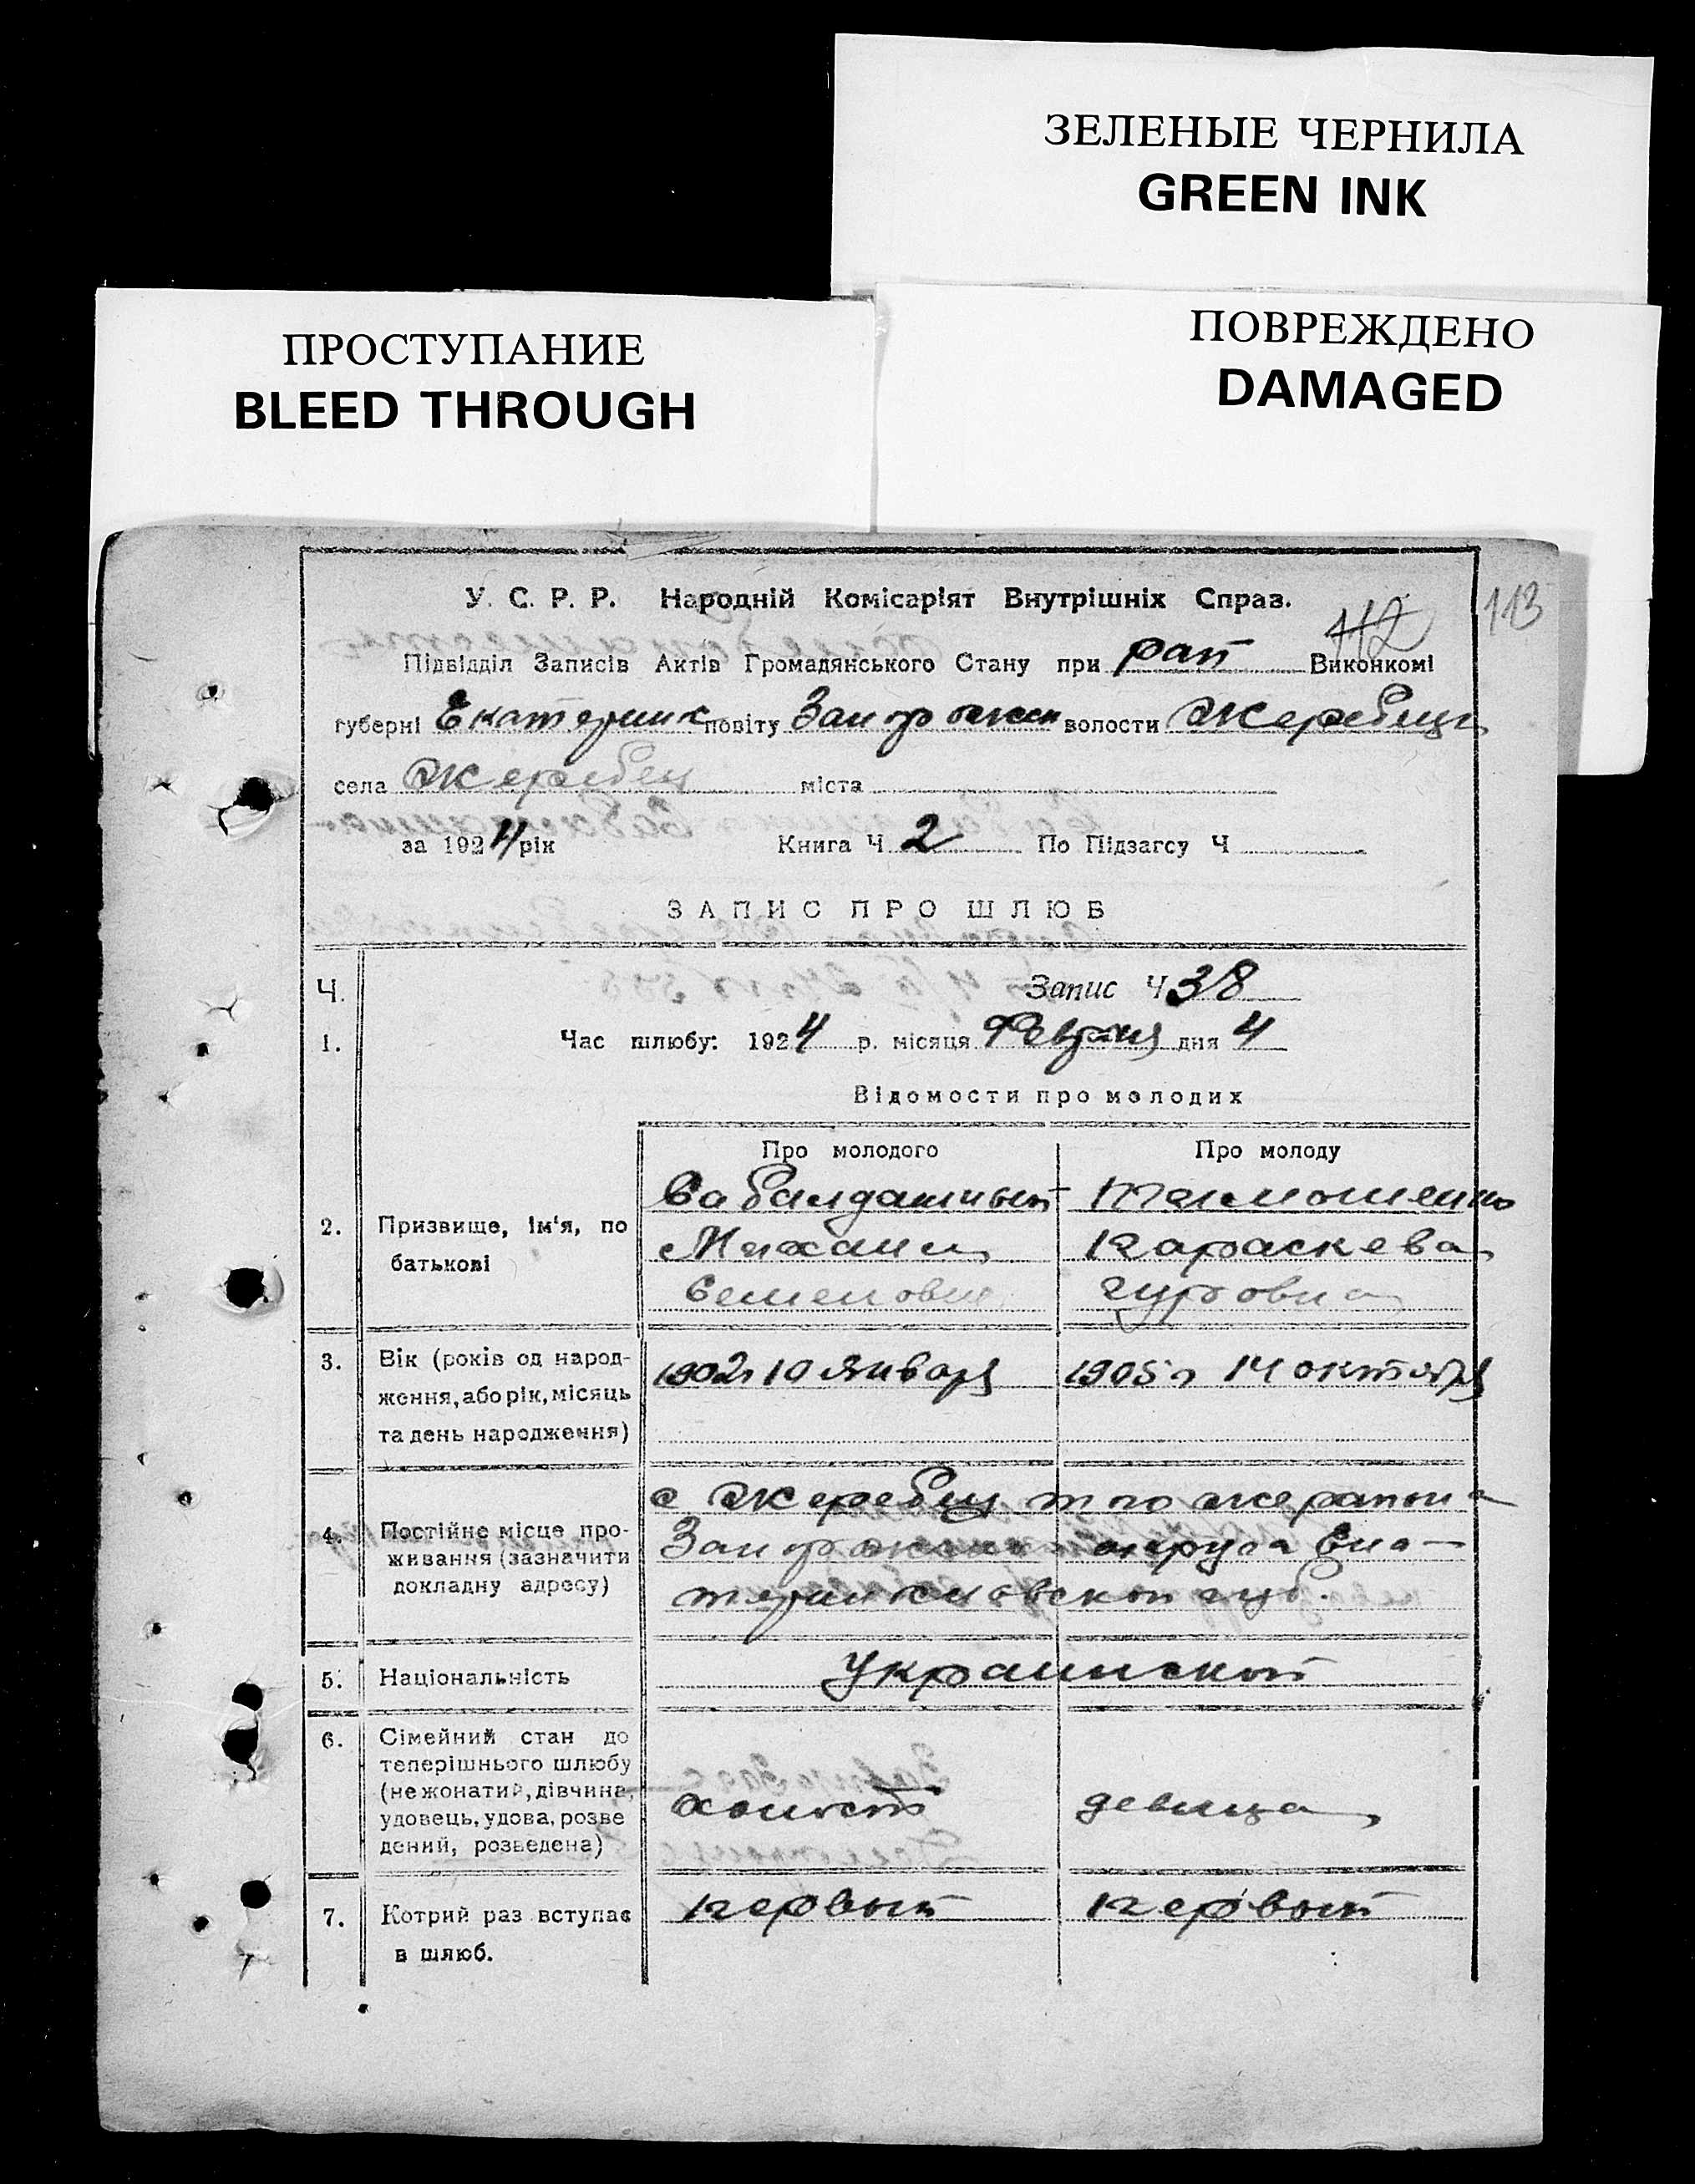 ЗЕЛЕНЫЕ ЧЕРНИЛА
GREEN INK
ПРОСТУПАНИЕ
BLEED THROUGH
ПОВРЕЖДЕНО
DAMAGED
У. С. Р. Р. Народній Комісаріят Внутрішніх Справ.
112 113
Підвідділ Записів Актів Громадянського Стану при рай Виконкомі
губерні Екатерин повіту Запорожск волости Жеребецк
села Жеребец міста
за 1924 рік Книга Ч 2 По Підзагсу Ч
ЗАПИС ПРО ШЛЮБ
Ч. Запис Ч 38
1. Час шлюбу: 1924 р. місяця Февраля дня 4
Відомости про молодих
Про молодого Про молоду
2. Призвище, ім'я, по батькові
Сабалдашный
Михаил
Семенович
Тимошенко
Параскева
Гуровна
3. Вік (років од народ-
ження, або рік, місяць
та день народження)
1902 г 10 января 1905 г 14 октября
4. Постійне місце про-
живання (зазначити
докладну адресу)
с Жеребец того же района
Запорожск округа Ека-
теринославской губ.
5. Національність Украинской
6. Сімейний стан до
теперішнього шлюбу
(нежонатий, дівчина,
удовець, удова, розве
дений, розведена)
холост девица
7. Котрий раз вступає
в шлюб.
первый первый